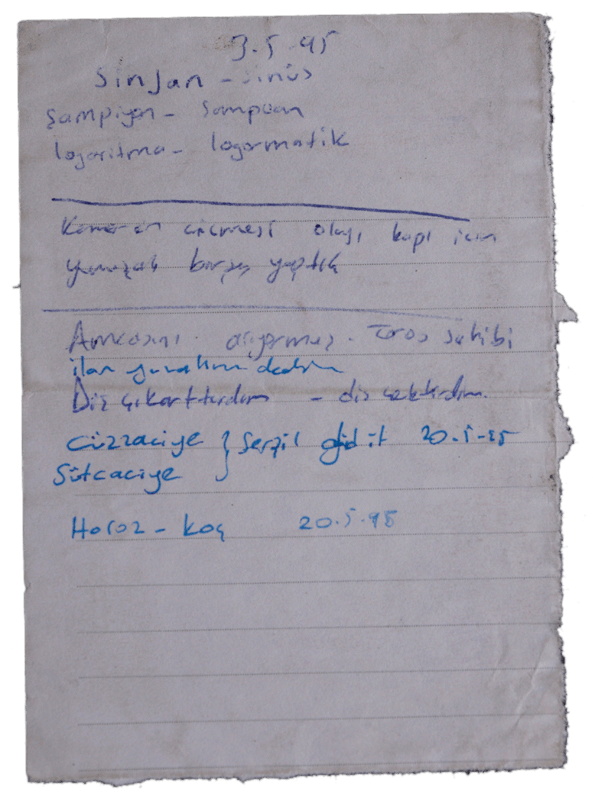 3.5.95
Sinjan - Sinüs
Şampiyon - Sampuan
logaritma - logormatik
olayı kapı için
yumuşak barış yaptık
Amcasını arıyormuş. Toros sahibi
ilan yapalım dedim
Diş çıkarttırdım - diş çektirdim.
Cüzzaciye } Serpil 20.5.95
Sütcaciye
Horoz - koç 20.5.95